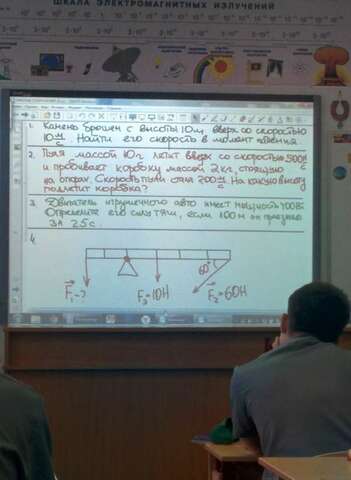 ШКАЛА ЭЛЕКТРОМАГНИТНЫХ ИЗЛУЧЕНИЙ
1. Камень брошен с высоты 10 м вверх со скоростью
10 м/с. Найти его скорость в момент падения.
2. Пуля массой 10 г летит вверх со скоростью 500 м/с
и пробивает коробку массой 2 кг, стоящую
на опорах. Скорость пули стала 200 м/с. На какую высоту
подлетит коробка?
3. Двигатель игрушечного авто имеет мощность 100 Вт.
Определите его силу тяги, если 100 м он проехал
за 25 с.
4.
60°
F₁-?
F₃=10Н
F₂=60Н